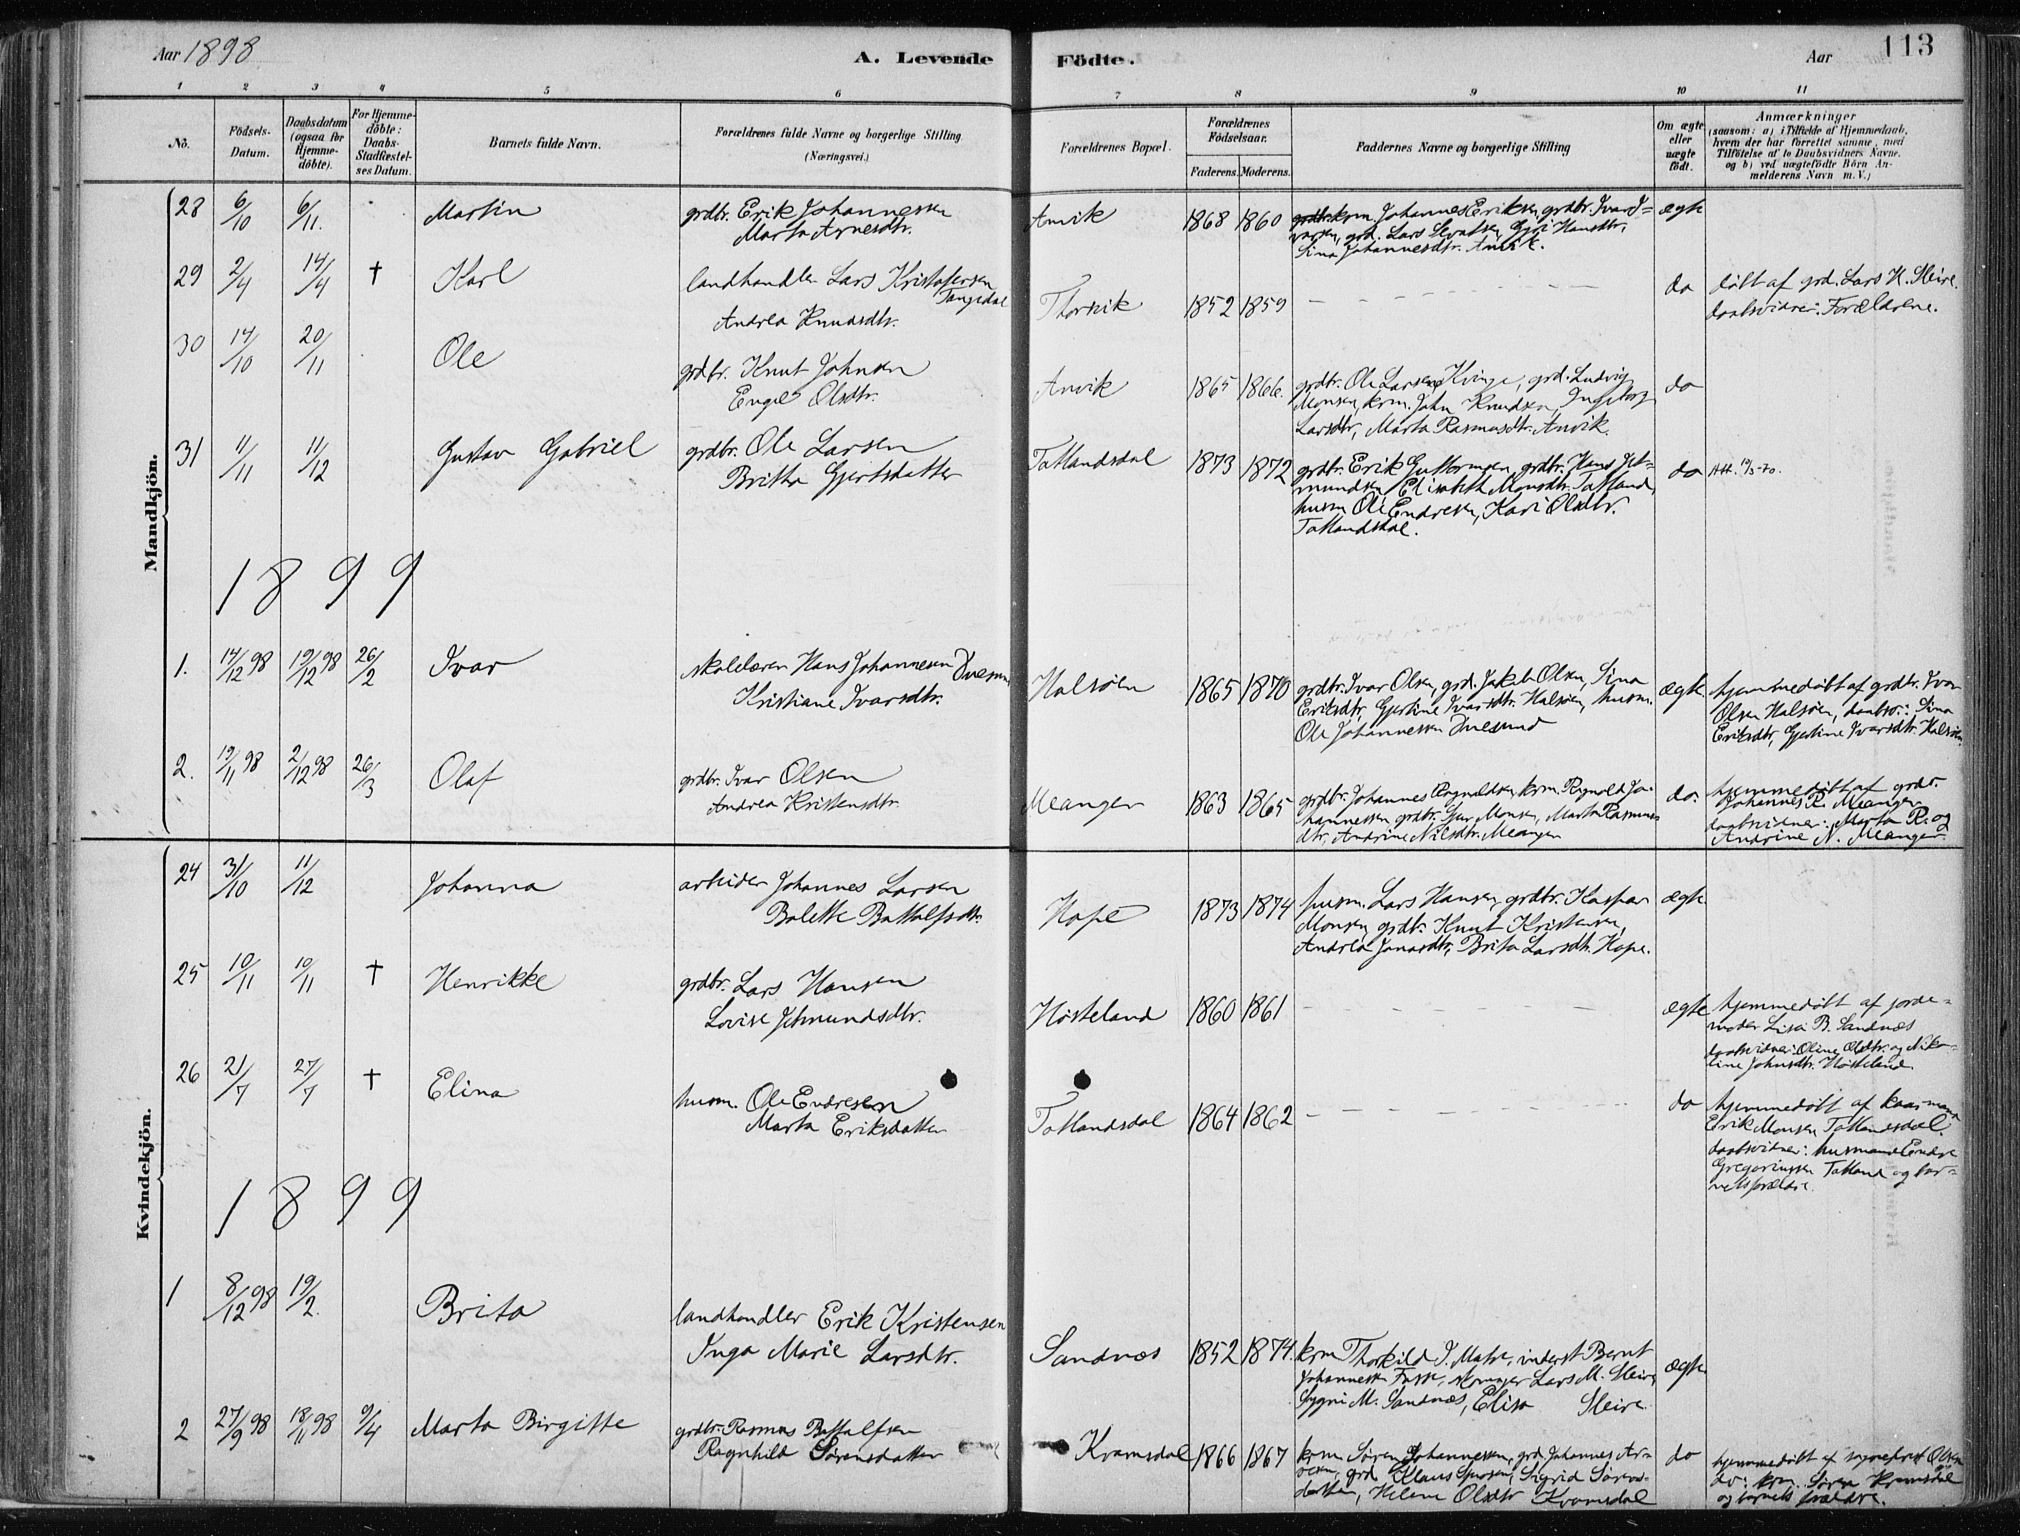 Aar 1898
A. Levende
Födte.
Aar
113
1 2 3 4 5 6 7 8 9 10 11
No.
Födsels-
Datum.
Daabsdatum
(ogsaa for
Hjemme-
döbte).
For Hjemme-
döbte:
Daabs-
Stadfæstel-
ses Datum.
Barnets fulde Navn.
Forældrenes fulde Navne og borgerlige Stilling
(Næringsvei.)
Forældrenes Bopæl.
Forældrenes
Födselsaar.
Faderens. Moderens.
Faddernes Navne og borgerlige Stilling
Om ægte
eller
uægte
födt.
Anmærkninger
(saasom: a) i Tilfælde af Hjemmedaab,
hvem der har forrettet samme, med
Tilföielse af to Daabsvidners Navne,
og b) ved uægtefödte Börn An-
melderens Navn m. V.)
Mandkjön.
28 6/10 6/11. Martin
grdbr. Erik Johannessen
Marta Arnesdtr.
Anvik 1868 1860
krm. Johannes Eriksen, grdbr. Ivar I-
varsen, grd. Lars Hansdtr,
Sina Johannesdtr. Anvik.
ægte
29 2/4 14/4 † Karl
landhandler Lars Kristofersen
Tangedal
Andrea Knudsdtr.
Thorvik 1852 1859
do
døbt af grd. Lars K. Skeire.
daabsvidner: Forældrene.
30 14/10 20/11 Ole
grdbr. Knut Johnsen
Engel Olsdtr.
Anvik 1865 1866.
grdbr. Ole Larsen Kvinge, grd. Ludvig
Monsen, krm. John Knudsen, Ingeborg
Larsdtr, Marta Rasmusdtr. Anvik.
do
31 11/11 11/12 Gustav Gabriel
grdbr. Ole Larsen
Britha Gjertsdatter
Totlandsdal 1873 1872
grdbr. Erik Guttormsen, grdbr. Hans Jet-
mundsen, Elisabeth Monsdtr. Totland,
husm Ole Endresen, Kari Olsdtr.
Totlandsdal.
do
Att.
1899
1. 14/12 98 19/12 98 26/2 Ivar
skolelærer Hans Johannesen
Kristiane Ivarsdtr.
Halsöen 1865 1870
grdbr. Ivar Olsen, grd. Jakob Olsen, Sina
Eriksdtr, Gjertine Ivarsdtr. Halsöen, husm.
Ole Johannessen
ægte
hjemmedøbt af grdbr. Ivar
Olsen Halsöen, daabsv.: Sina
Eriksdtr, Gjertine Ivarsdtr. Halsöen.
2. 19/11 98 2/12 98 26/3 Olaf
grdbr. Ivar Olsen
Andrea Kristensdtr.
Meanger 1863 1865
grdbr. Johannes Ragnaldsen, krm. Ragnald Jo-
hannessen, grdbr. Sjur Monsen, Marta Rasmus
dtr, Andrine Nilsdtr. Meanger
do.
hjemmedøbt af grdb.
Johannes R. Meanger
daabsvidner: Marta R. og
Andrine N. Meanger.
Kvindekjön.
24 31/10 11/12 Johanna
arbeider Johannes Larsen
Bolette Botolfsdtr.
Hope 1873 1874
husm. Lars Hansen, grdbr. Kaspar
Monsen, grdbr. Knut Kristensen,
Andrea Jonasdtr, Brita Larsdtr. Hope.
ægte
25 10/11 10/11 † Henrikke
grdbr. Lars Hansen
Lovise Jetmundsdtr.
Hosteland 1860 1861
ægte
hjemmedøbt af jorde-
moder Lisa B. Sandnæs
daabsvidner: Oline Olsdtr. og Niko-
line Johnsdtr. Hosteland.
26 21/7 27/7 † Elina
husm. Ole Endresen
Marta Eriksdatter
Totlandsdal 1864 1862
do
hjemmedøbt af kaarmand
Erik Monsen Totlandsdal.
daabsvidner: husmand Endre
Gregoriussen Totland og bar-
nets forældre.
1899
1 8/12 98 19/2. Brita
landhandler Erik Kristensen
Inga Marie Larsdtr.
Sandnæs 1852 1874.
krm Thorkild I. Matre, inderst Bernt
Johannesen Lars M. Skeire,
M. Sandnæs, Elisa Skeire
ægte
2 27/9 98 18/11 98 9/4 Marta Birgitte
grdbr. Rasmus Botolfsen
Ragnhild Sørensdatter
Kvamsdal 1866 1867
krm Søren Johannessen, grd. Johannes Ar-
nesen, grd Klaus Sigrid Sørens-
datter, Helene Olsdtr Kvamsdal
do
hjemmedøbt af sogneprest
dv: krm. Søren Kvamsdal
og barnets forældre.